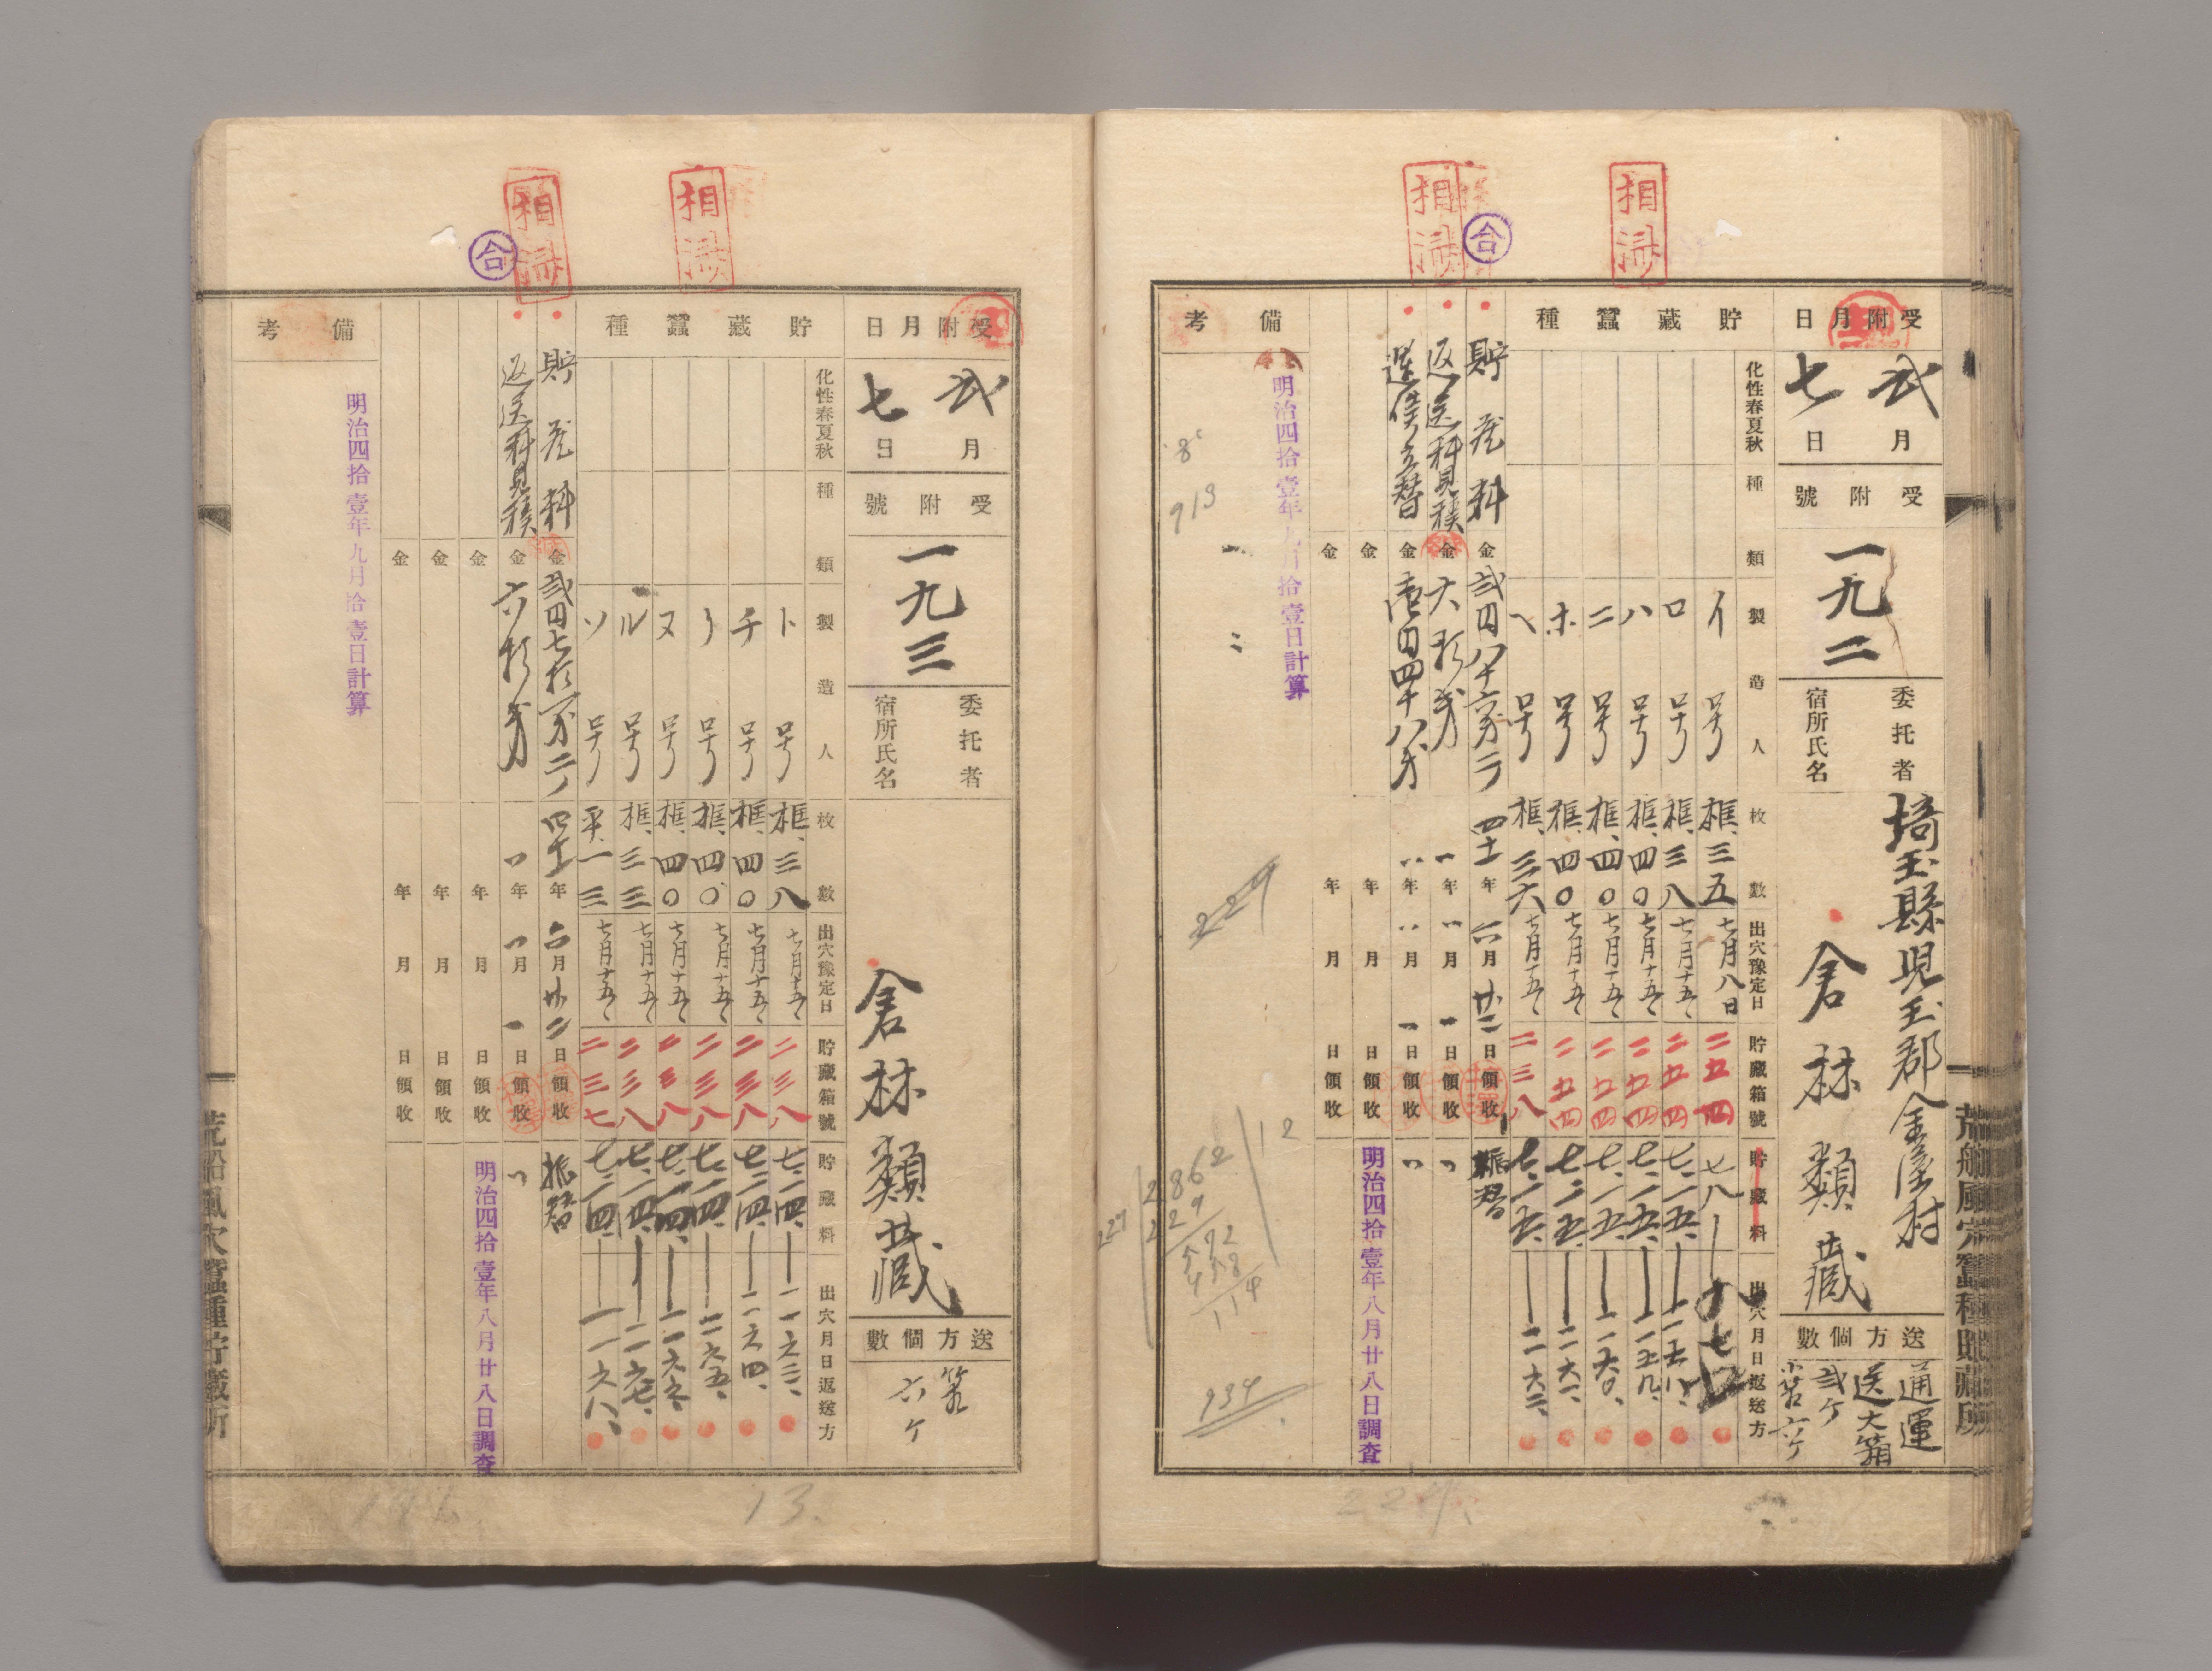 相渉
相渉
合
受附月日
弐月
七日
受附號
一九二
委托者
宿所氏名
埼玉縣児玉郡金屋村
倉林類藏
送方個數
通運
送大箱
弐ケ
貯藏蠶種
化性春夏秋
種類
製造人
枚數
出穴豫定日
貯藏箱號
貯藏料
出穴月日返送方
イ号 框、三五 七月八日 二五四
ロ号 框、三八 七月十五〃 二五四 七、一五、
ハ号 框、四〇 七月十五〃 二五四 七、一五、
ニ号 框、四〇 七月十五〃 二五四 七、一五、
ホ号 框、四〇 七月十五〃 二五四
ヘ号 框、三六 七月十五〃 二三八
貯蔵料 金 弐円八十六戔二 四十一年六月廿二日領收 振替
返送料見積 金 六拾戔 〃年〃月〃日領收 〃
金 壱円四十八戔 〃年〃月〃日領收 〃
金 年 月 日領收
金 年 月 日領收
明治四拾壹年八月廿八日調査
備考
明治四拾壹年九月拾壹日計算
8
913
229
2862
229
572
458
114
12
229
934
荒船風穴蠶種貯藏所
相渉
相渉
合
受附月日
弐月
七日
受附號
一九三
委托者
宿所氏名
倉林類藏
送方個數
六ケ
貯藏蠶種
化性春夏秋
種類
製造人
枚數
出穴豫定日
貯藏箱號
貯藏料
出穴月日返送方
ト号 框、三八 七月十五〃 二三八 七、二四、 一一六三、
チ号 框、四〇 七月十五〃 二三八 七、二四、 一一六四、
リ号 框、四〇 七月十五〃 二三八 七、二四、
ヌ号 框、四〇 七月十五〃 二三八 七、二四、 一一六六、
ル号 框、三三 七月十五〃 二三八 七、二四、
ソ号 平、一三 七月十五〃 二三七 七、二四、 一一六八、
貯蔵料 金 弐円七拾一戔二 四十一年六月廿二日領收 振替
返送料見積 金 六拾戔 〃年〃月〃日領收 〃
金 年 月 日領收
金 年 月 日領收
金 年 月 日領收
明治四拾壹年八月廿八日調査
備考
明治四拾壹年九月拾壹日計算
荒船風穴蠶種貯藏所
13.